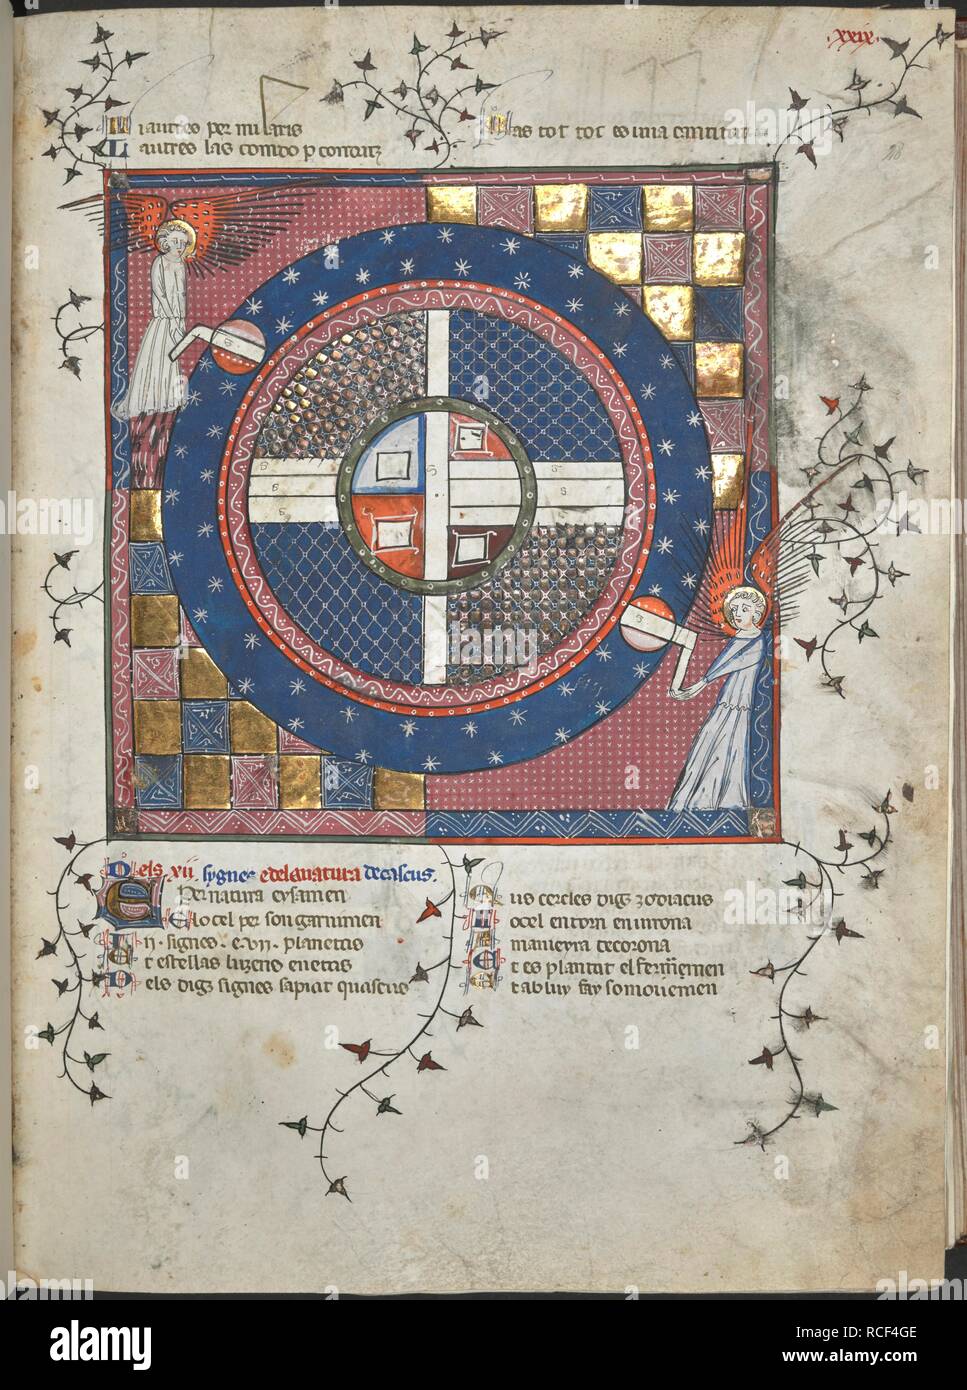 xxix
Li autreo per mi latis
Lautreo las combo p contratz
Mas tot toc es una cantitat
28
S
S
S
S
S
Dels xii sygnes e de la natura de cascus.
E Per natura eysamen
El o cel per son garnimen
xii · signes · e vii · planetas
Et estellas luzens enetas
Dels digz signes sapiat quascus
Q us cercles digz zodiacus
Lo cel en torn en virona
E manieyra de corona
Et es plantat el fermemen
Et ab luy fay so movemen
alamy
Image ID: RCF4GE
www.alamy.com